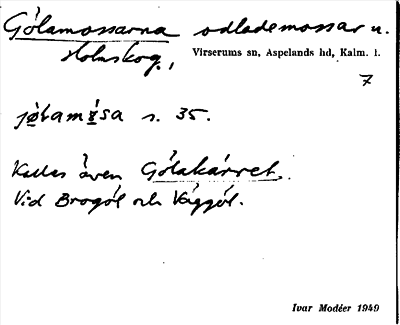 Gölamossarna odlade mossar u.
Holmskog.,
Virserums sn, Aspelands hd, Kalm. l.
7
jø̀lamɷ̀sa s. 35.
Kallas även Gölakärret.
Vid Brogöl och Väggöl.
Ivar Modéer 1949